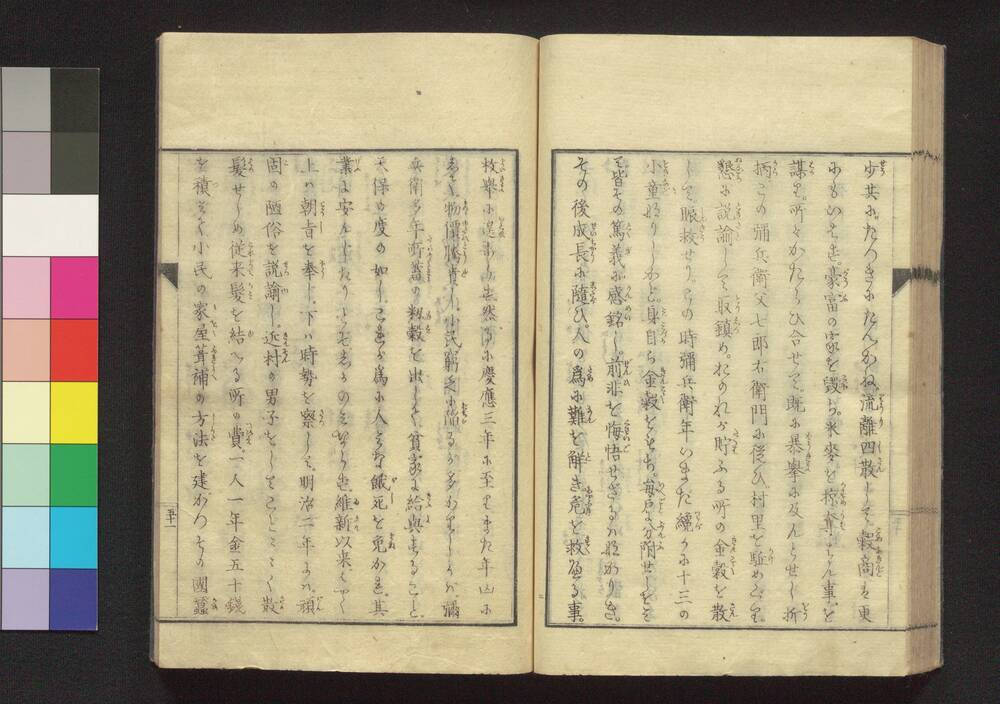 少其に、たつきにたんかね、流離四散して、穀商は更
にもいはず、豪富の家を毀ち、米麥を掠奪せん事を
謀り、所々かたらひ合せて、既に暴擧に及んとせし折
柄、この彌兵衛父七郎右衛門に従ひ村里を駈めぐり
懇に説諭して取鎮め、おのれが貯ふる所の金穀を散
して賑救せり、この時彌兵衛年いまだ纔かに十三の
小童なりしかど、身自ら金穀をもち、毎戸に分附せしを
皆その篤義に感銘し、前非を悔悟せざるはなかりき、
その後成長に隨ひ、人の爲に難を解き危を救へる事、
枚擧に遑あらず、然るに慶應三年に至りまた年凶に
して物價騰貴し、小民窮乏に陥るもの多かりしかば、彌
兵衛多年所蓄の籾穀を出して、貧家に給與すること、
天保の度の如し、これが爲に人みな餓死を免かれ、其
業に安んじたり、しかのみならず、維新以來、よく
上は朝旨を奉し、下は時勢を察して、明治二年より、頑
固の陋俗を説諭し、近村の男子をしてことごとく散
髪せしめ、従来髪を結へる所の費、一人一年金五十錢
を積て、小民の家屋葺補の方法を建、かつその國蠶
五十一